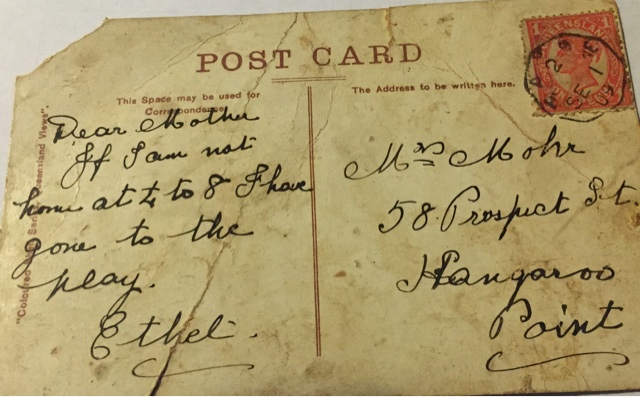 POST CARD
This Space may be used for
Correspondence.
The Address to be written here.
QUEENSLAND
1 1
Dear Mother
If I am not
home at ¼ to 8 I have
gone to the
play.
Ethel.
Mrs Mohr
58 Prospect St.
Kangaroo
Point
"Coloured Queensland Views".